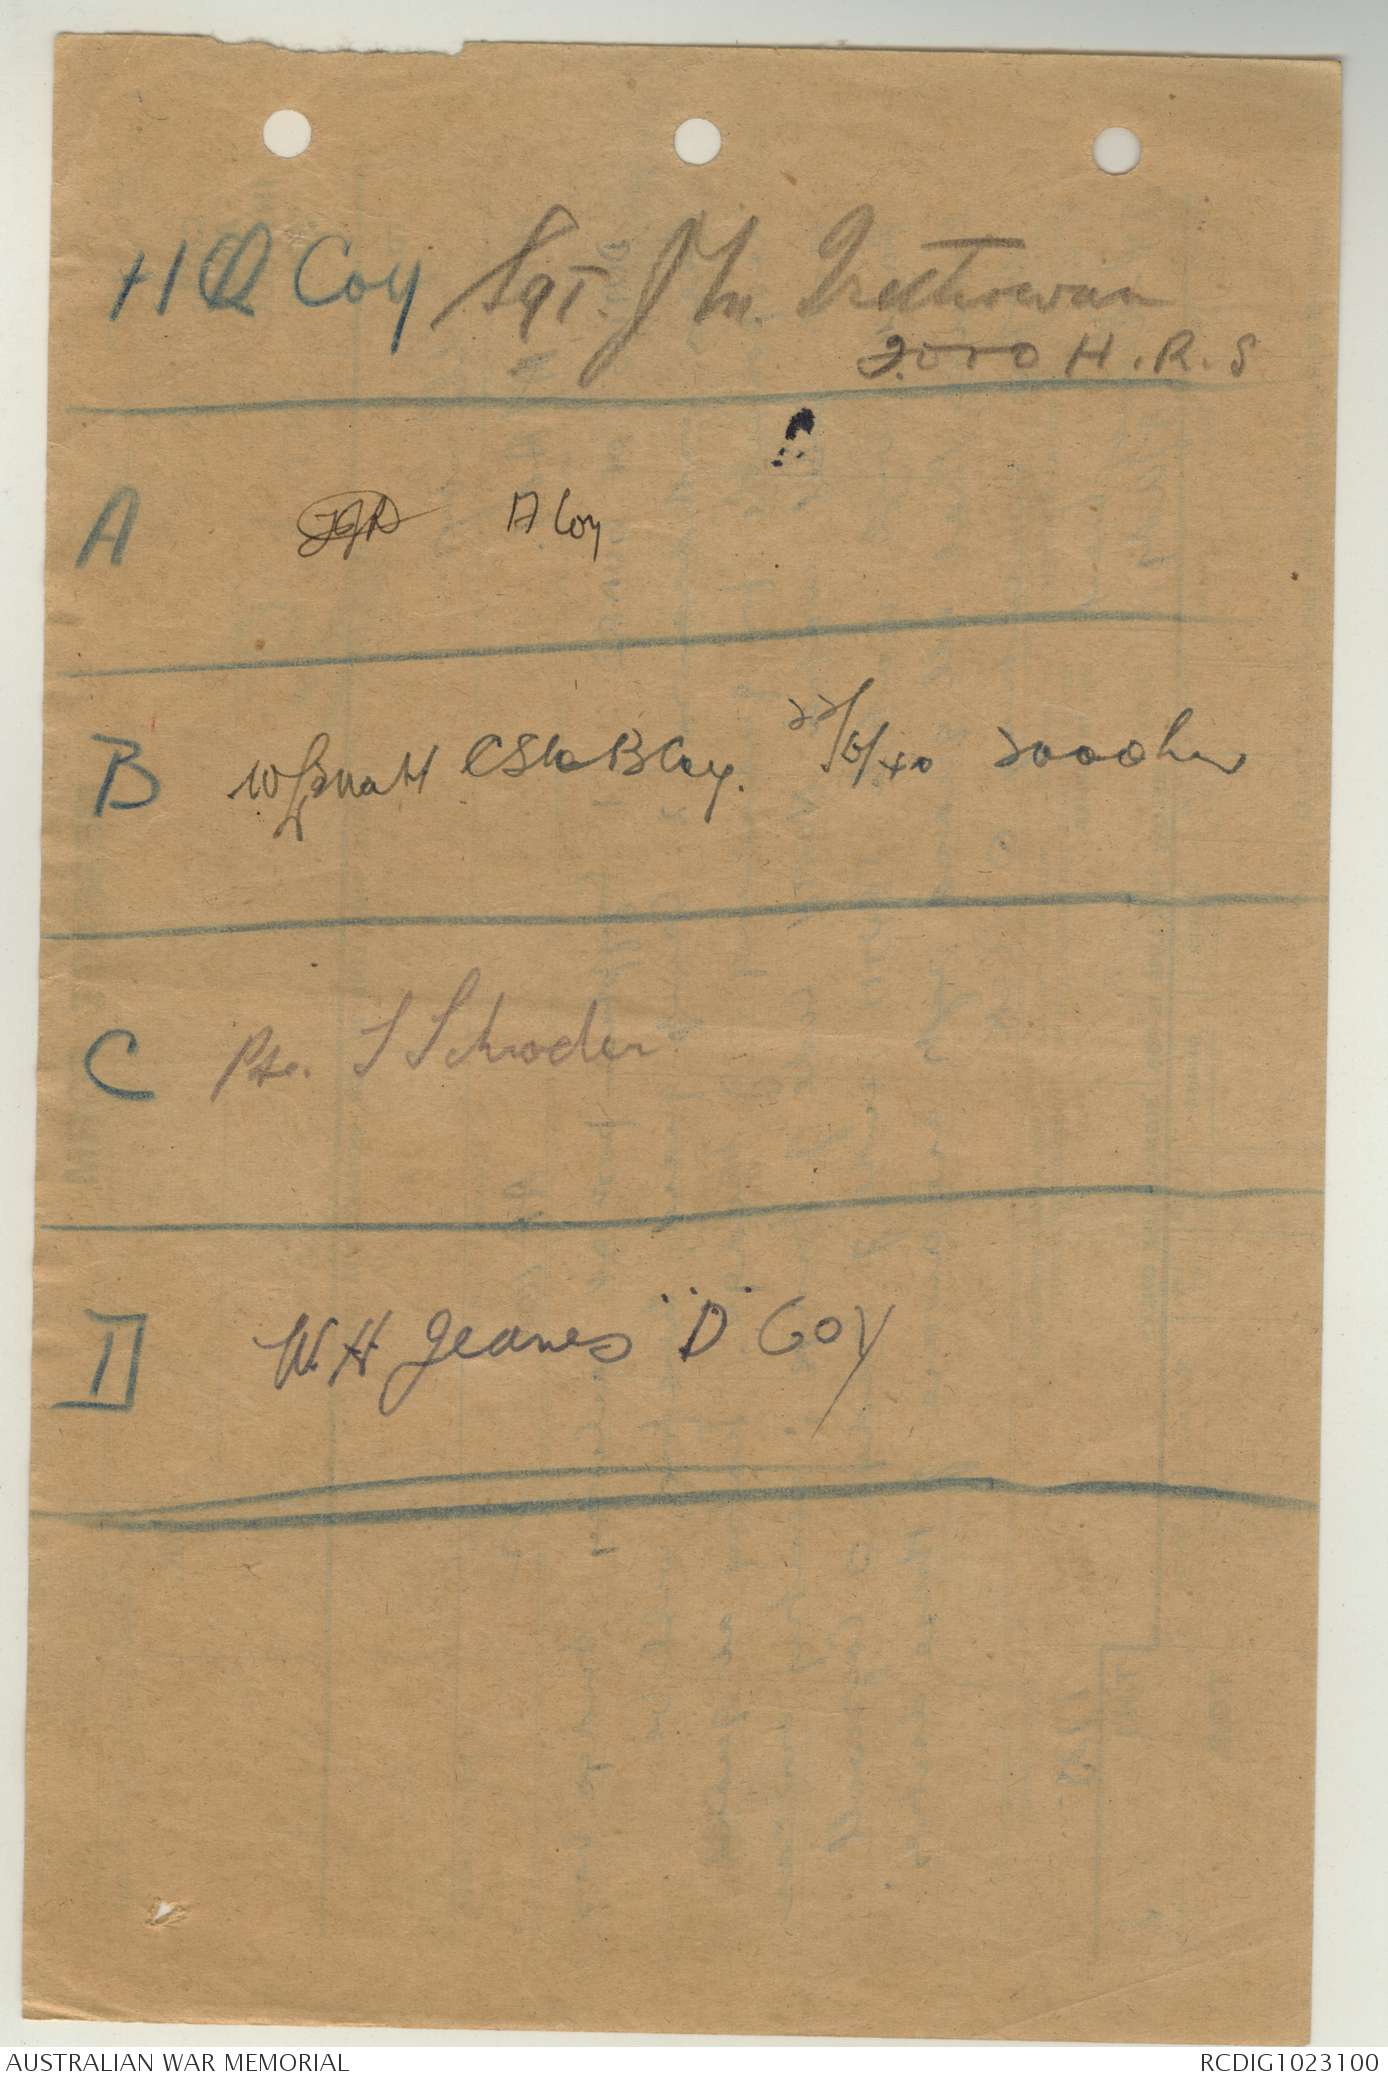 HQ Coy Sgt. J M. Trethowan
2000 H.R.S
A A Coy
B CSM B Coy. 22/6/40 2000 hrs
C Pte. S Schroder
D W.H Jeanes "D" Coy
AUSTRALIAN WAR MEMORIAL
RCDIG1023100